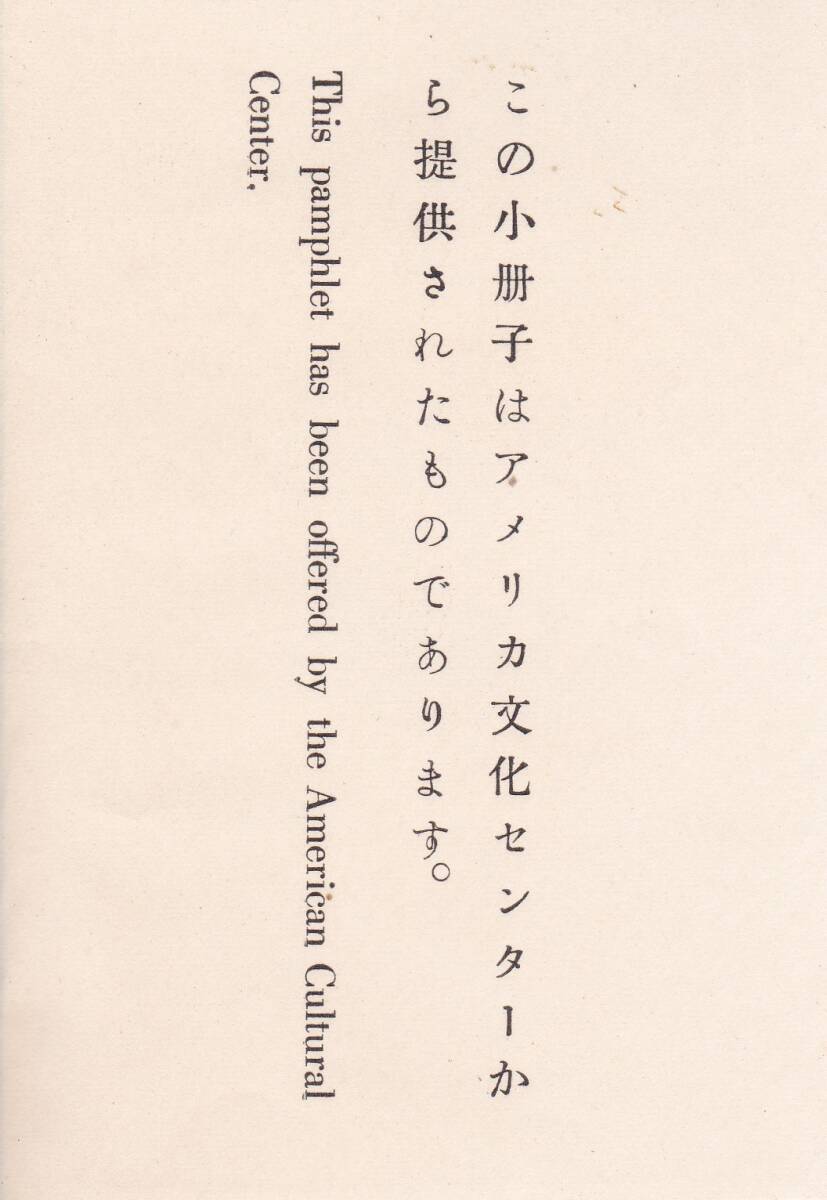 この小册子はアメリカ文化センターか
ら提供されたものであります。
This pamphlet has been offered by the American Cultural
Center.